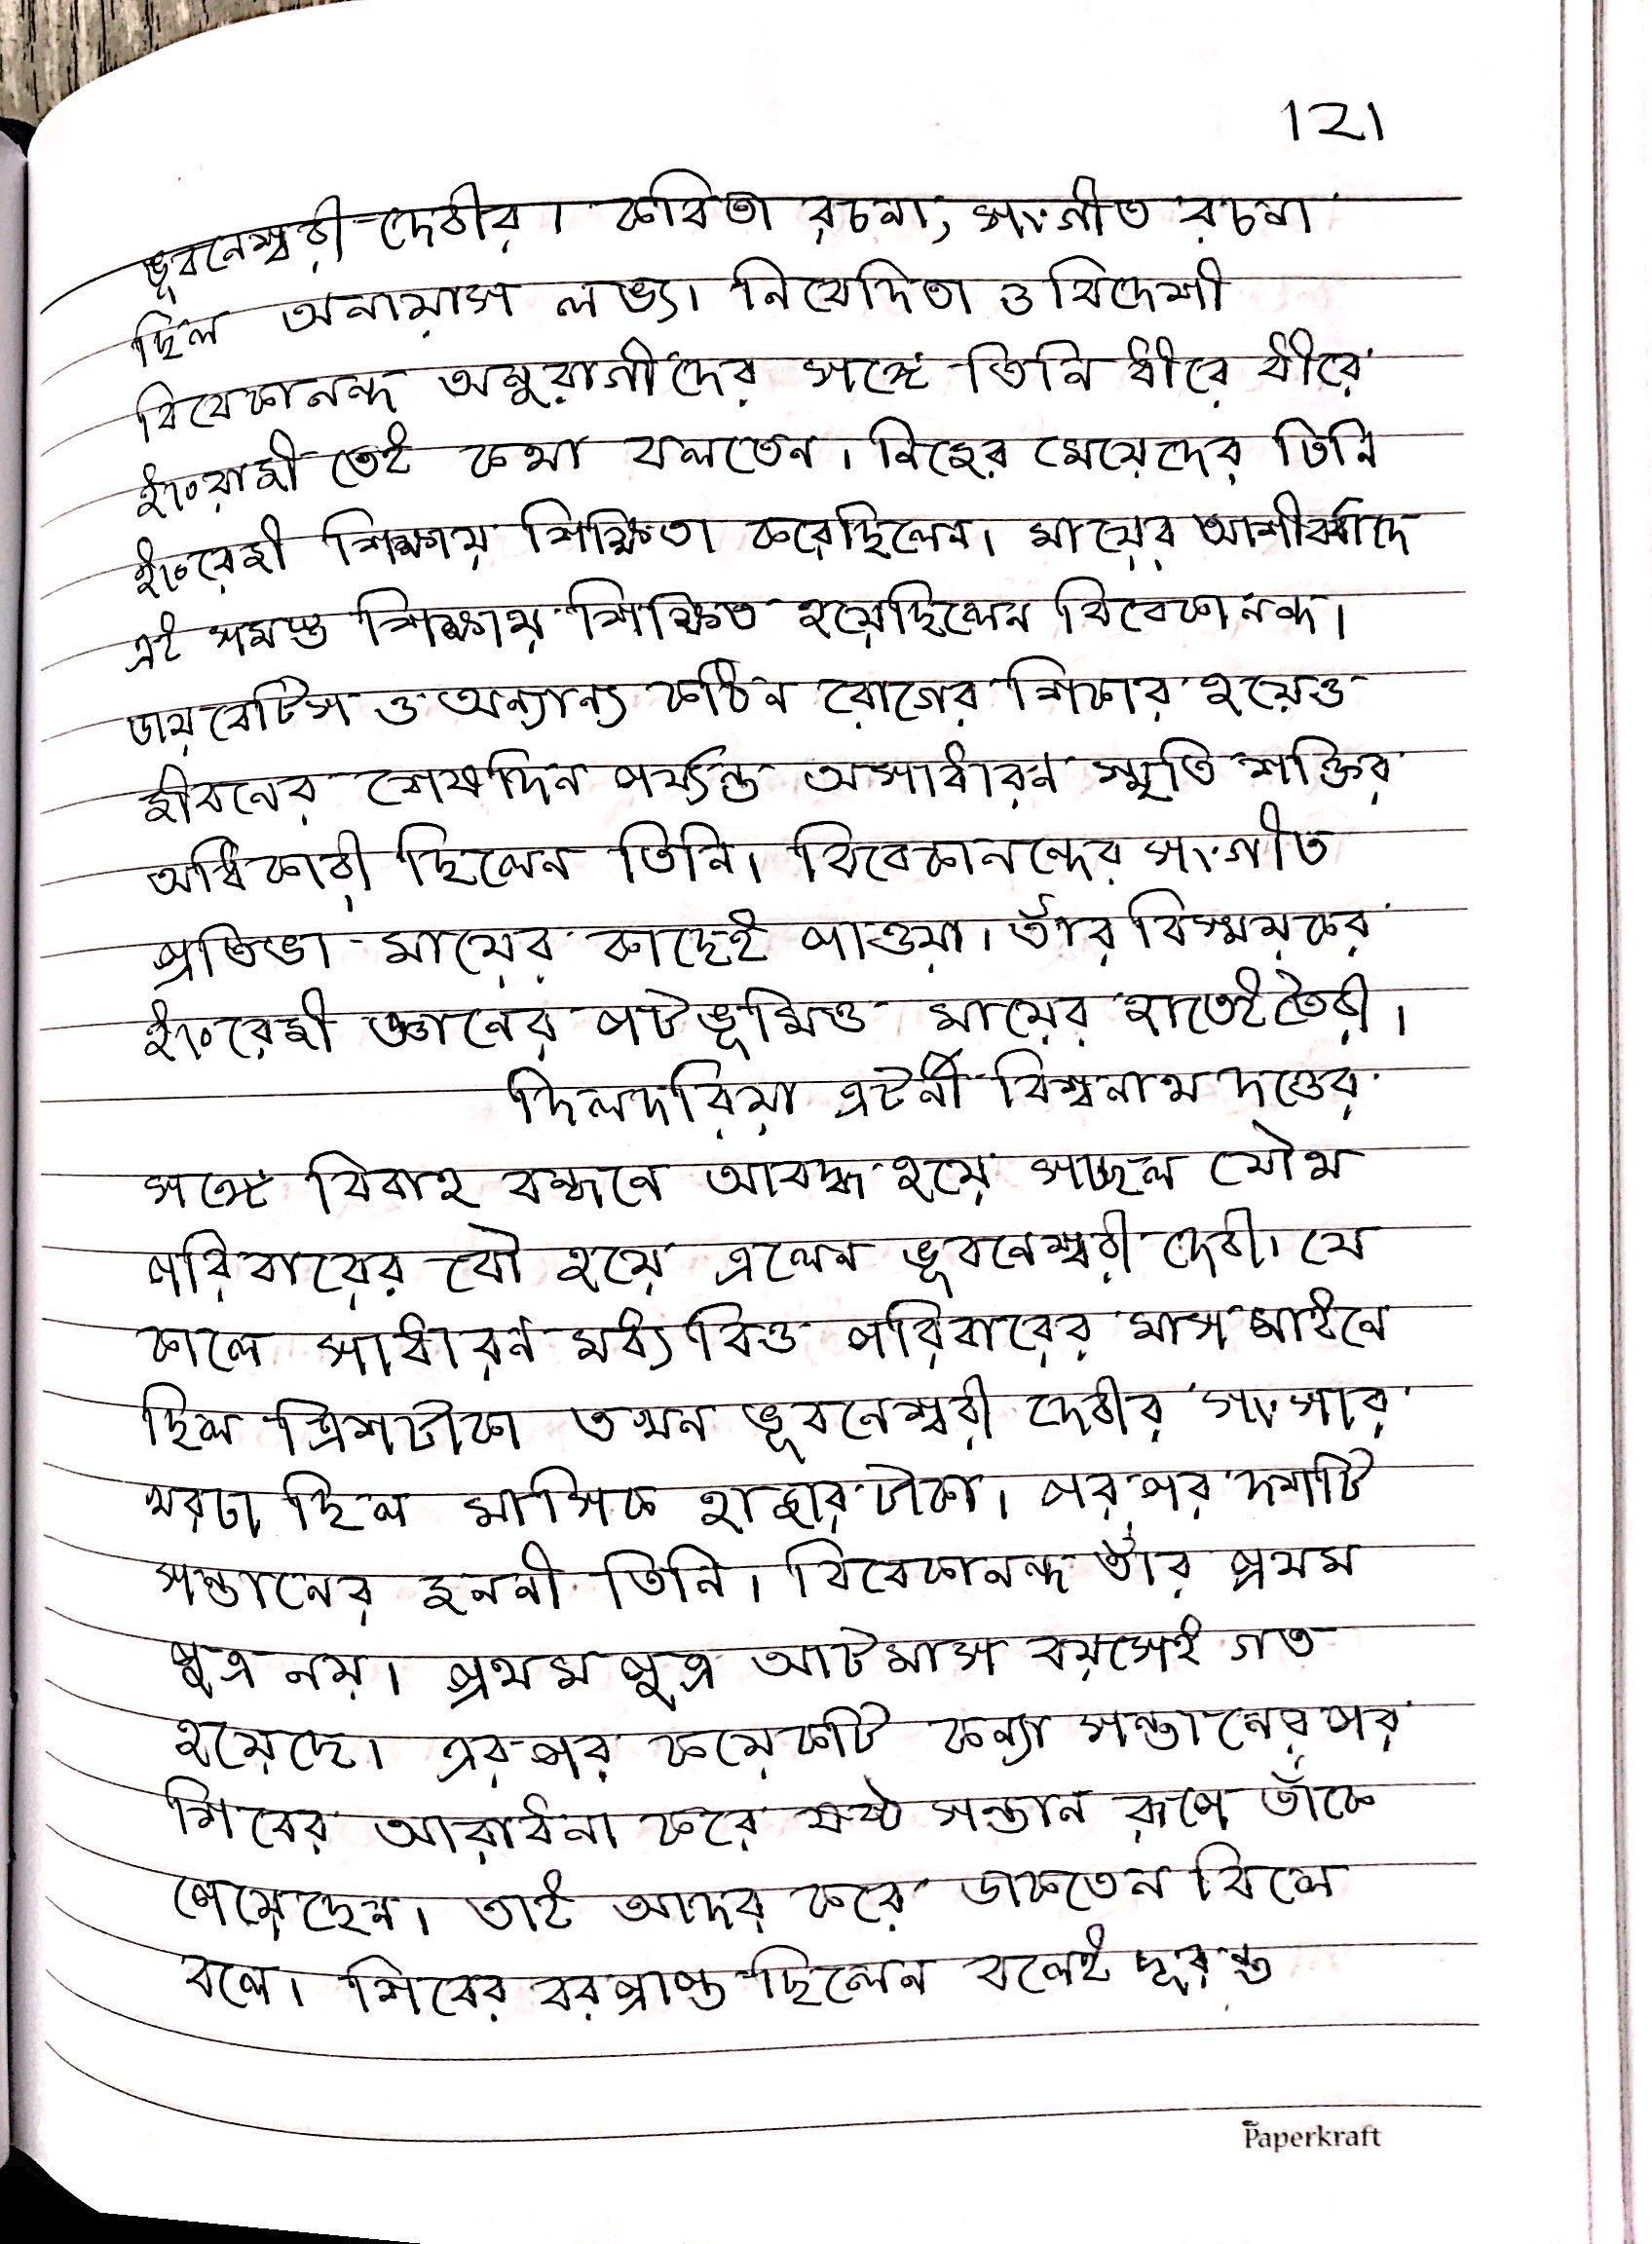 ।২।
ভূবনেশ্বরী দেবীর। কবিতা রচনা, সংগীত রচনা
ছিল অনায়াস লভ্য। নিবেদিতা ও বিদেশী
বিবেকানন্দ অনুরাগীদের সঙ্গে তিনি ধীরে ধীরে
ইংরাজী তেই কথা বলতেন। নিজের মেয়েদের তিনি
ইংরেজী শিক্ষায় শিক্ষিতা করেছিলেন। মায়ের আশীর্বাদে
এই সমস্ত শিক্ষায় শিক্ষিত হয়েছিলেন বিবেকানন্দ।
ডায়বেটিস ও অন্যান্য কঠিন রোগের শিকার হয়েও
জীবনের শেষদিন পর্য্যন্ত অসাধারন স্মৃতি শক্তির
অধিকারী ছিলেন তিনি। বিবেকানন্দের সংগীত
প্রতিভা মায়ের কাছেই পাওয়া। তাঁর বিস্ময়কর
ইংরেজী জ্ঞানের পটভূমিও মায়ের হাতেই তৈরী।
দিলদরিয়া এটর্নী বিশ্বনাথ দত্তের
সঙ্গে বিবাহ বন্ধনে আবদ্ধ হয়ে সচ্ছল যৌথ
পরিবারের বৌ হয়ে এলেন ভূবনেশ্বরী দেবী। যে
কালে সাধারন মধ্যবিত্ত পরিবারের মাস মাইনে
ছিল ত্রিশটাকা তখন ভূবনেশ্বরী দেবীর সংসার
খরচা ছিল মাসিক হাজার টাকা। পর পর দশটি
সন্তানের জননী তিনি। বিবেকানন্দ তাঁর প্রথম
পুত্র নয়। প্রথম পুত্র আটমাস বয়সেই গত
হয়েছে। এর পর কয়েকটি কন্যা সন্তানের পর
শিবের আরাধনা করে ষষ্ঠ সন্তান রূপে তাঁকে
পেয়েছেন। তাই আদর করে ডাকতেন বিলে
বলে। শিবের বরপ্রাপ্ত ছিলেন বলেই দূরন্ত
Paperkraft